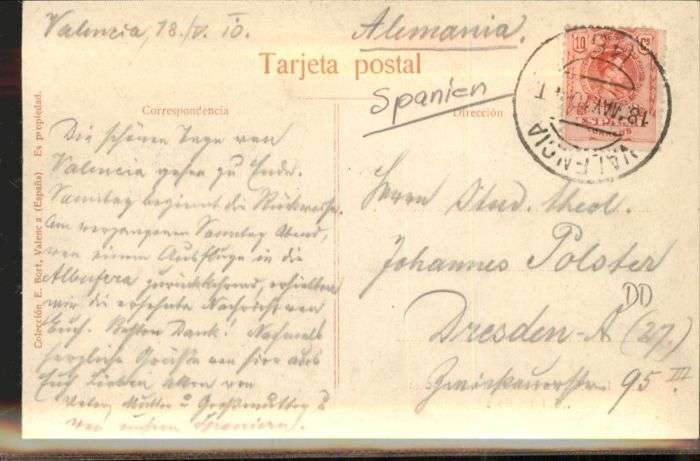 Valencia, 18./V. 10.
Alemania.
Tarjeta postal
Spanien
Correspondencia
Dirección
Die schönen Tage von
Valencia gehen zu Ende.
Samstag beginnt die Rückreise.
Am vergangenen Sonntag Abend,
von einem Ausfluge in die
Albufera zurückkehrend, erhielten
wir die ersehnte Nachricht von
Euch. Besten Dank! Nochmals
herzliche Grüße von hier aus
Euch Lieben allen von
Vater, Mutter u Großmutter
von
Herrn Stud. theol.
Johannes Polster
DD
Dresden-A (27.)
Zwickauerstr. 95 III.
Colección E. Bort, Valencia (España) Es propiedad.
10 Cs
ESPAÑA
VALENCIA
18 MAY 10